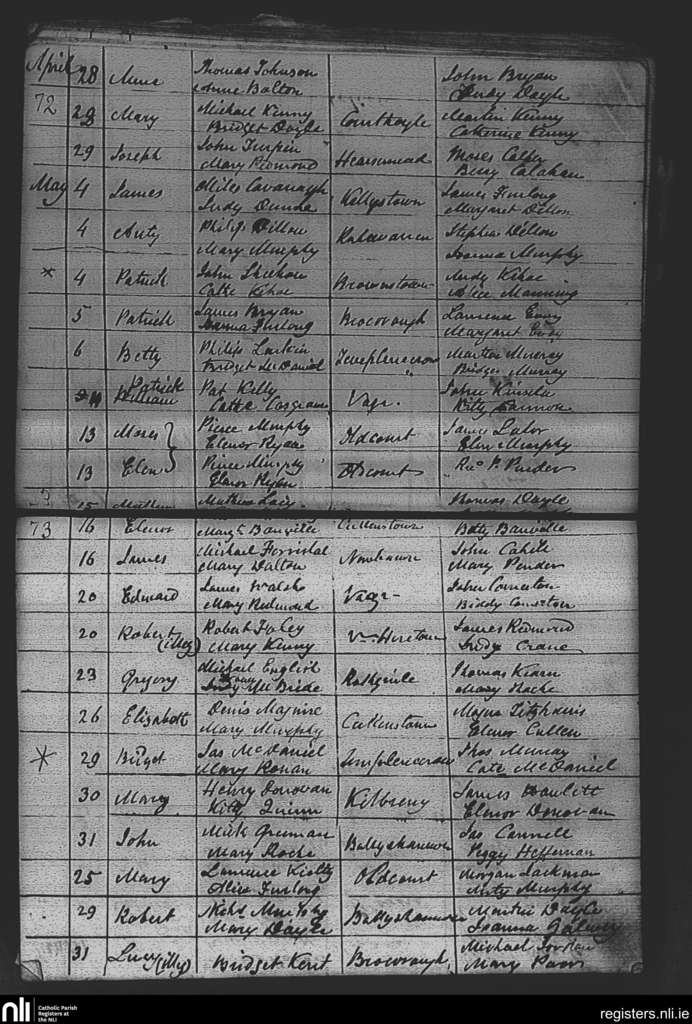 April 28 Anne Thomas Johnson John Bryan
Anne Bolton Judy Doyle
72 29 Mary Michael Kenny Courthoyle Martin Kenny
Bridget Doyle Catherine Kenny
29 Joseph John Turpin Moses
Mary Redmond Callahan
May 4 James Miles Cavanagh Kellystown James Furlong
Judy Dunda Margaret Dillon
4 Anty Philip Dillon Stephen Dillon
Mary Murphy Joanna Murphy
* 4 Patrick John Sheehan Brownstown Andy Kehoe
Catte Kehoe Alice Manning
5 Patrick James Bryan Brocorough Laurence
Joanna Furlong Margaret
6 Betty Philip Larkin Templescrow Martin Murray
Bridget McDaniel Bridget Murray
Patrick
William Pat Kelly Vagr. John Kinsela
Catte Cosgrave Kitty
13 Moses Pierce Murphy Oldcourt James Lalor
Elenor Ryan Elen Murphy
13 Elen Pierce Murphy Oldcourt Revd P. Pender
Elenor Ryan
15 Mathew Lacy Thomas Doyle
73 16 Elenor Margt Banville Cullenstown Betty Banville
16 James Michael Forristal Newhouse John Cahill
Mary Dalton Mary Pender
20 Edward James Walsh Vagr- John
Mary Redmond Biddy
20 Robert Robert Foley James Redmond
(illeg) Mary Kenny Judy Crane
23 Gregory Michael English Thomas Kearn
McBride Mary Roche
26 Elizabeth Denis Maguire Cullenstown Fitzharris
Mary Murphy Elenor Cullen
* 29 Bridget Jas McDaniel Templescrow Thos Murray
Mary Ronan Cate McDaniel
30 Mary Henry Donovan Kilbreny James Howlett
Kitty Quinn Elenor Donovan
31 John Mick Grennan Ballyshannon Jas Connell
Mary Roche Peggy Heffernan
25 Mary Laurence Kielty Oldcourt Morgan Jackman
Alice Furlong Anty Murphy
29 Robert Nichs Murphy Ballyshannon Martin Doyle
Mary Doyle Joanna Galway
31 Lucy (illeg) Bridget Kent Brocorough Michael Jordan
Mary Power
nli Catholic Parish
Registers at
the NLI
registers.nli.ie